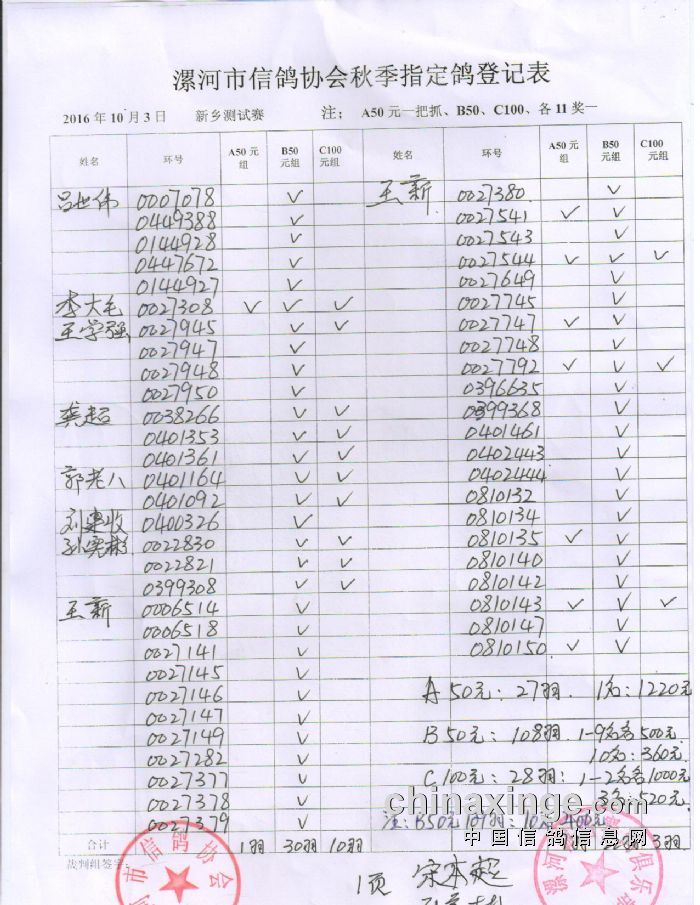 漯河市信鸽协会秋季指定鸽登记表
2016年10月3日 新乡测试赛 注； A50元一把抓、B50、C100、各11奖一
姓名 环号 A50元组 B50元组 C100元组 姓名 环号 A50元组 B50元组 C100元组
吕世伟 0007078 ✓ 王新 0027380 ✓
0449388 ✓ 0027541 ✓ ✓
0144928 ✓ 0027543 ✓
0447672 ✓ 0027544 ✓ ✓ ✓
0144927 ✓ 0027649 ✓
李大毛 0027308 ✓ ✓ ✓ 0027745 ✓
王学强 0027945 ✓ ✓ 0027747 ✓ ✓
0027947 ✓ 0027748 ✓
0027948 ✓ 0027792 ✓ ✓ ✓
0027950 ✓ 0396635 ✓
龚超 0038266 ✓ ✓ 0399368 ✓
0401353 ✓ ✓ 0401461 ✓
0401361 ✓ ✓ 0402443 ✓
郭老八 0401164 ✓ ✓ 0402444 ✓
0401092 ✓ ✓ 0810132 ✓
刘建收 0400326 ✓ 0810134 ✓
孙宪彬 0022830 ✓ ✓ 0810135 ✓ ✓
0022821 ✓ ✓ 0810140 ✓
0399308 ✓ ✓ 0810142 ✓
王新 0006514 ✓ 0810143 ✓ ✓ ✓
0006518 ✓ 0810147 ✓
0027141 ✓ 0810150 ✓ ✓
0027145 ✓
0027146 ✓ A50元：27羽. 1名：1220元
0027147 ✓
0027149 ✓ B50元：108羽. 1-9名各500元
0027282 ✓ 10名：360元
0027377 ✓ C100元：28羽：1-2名各1000元
0027378 ✓ 3名：520元
0027379 ✓ 注：B50元 10名400元
chinaxinge.com
中国信鸽信息网
合计 1羽 30羽 10羽 3羽
裁判组签字：
1页 宋本超
市信鸽协会
漯河 俱乐